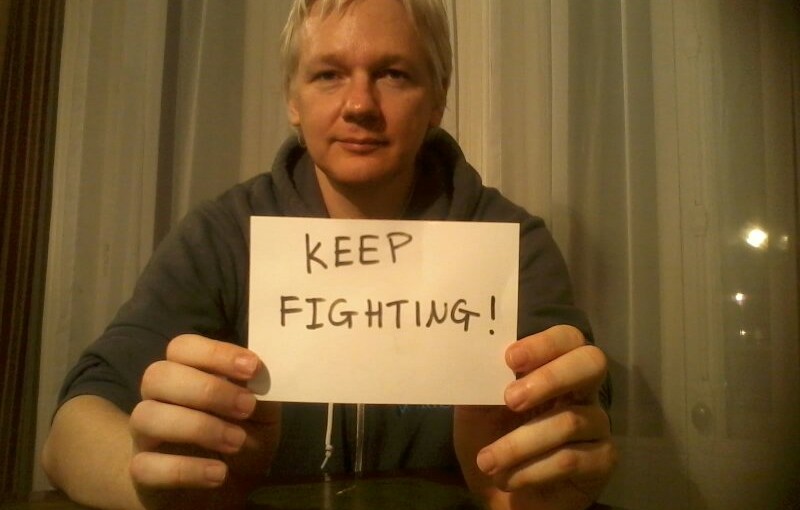 KEEP
FIGHTING!